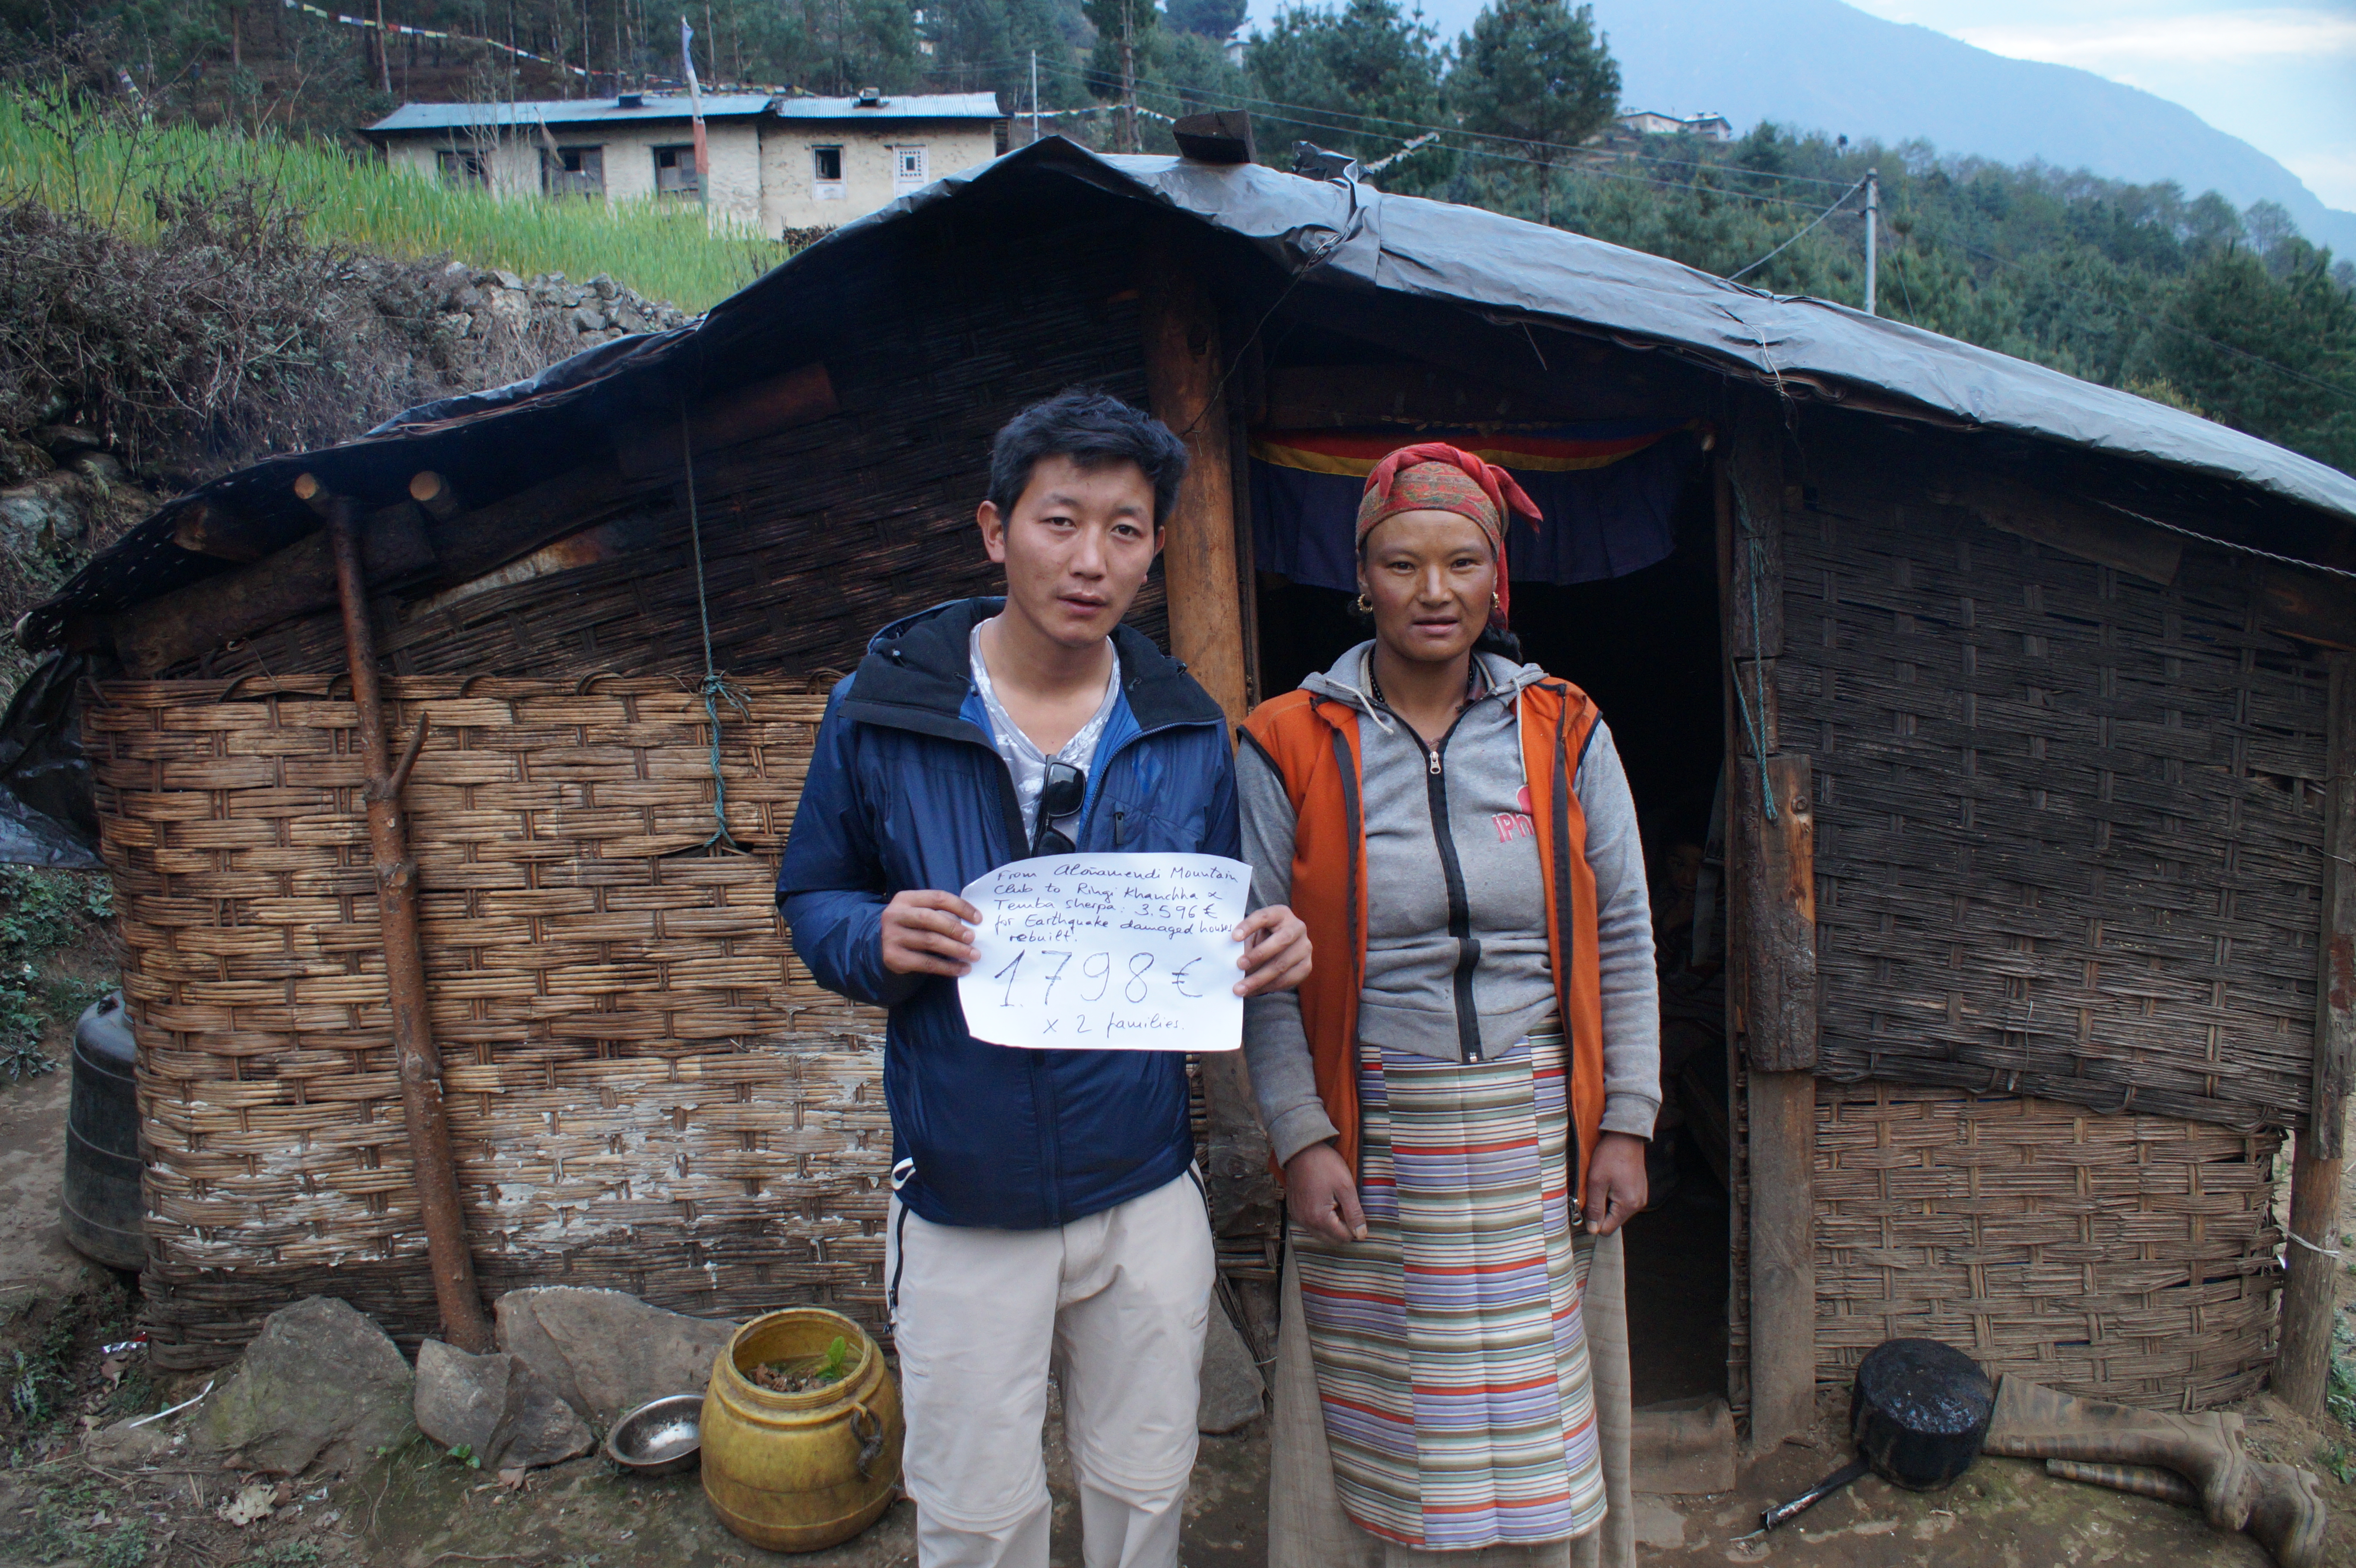 From Aloñamendi Mountain
Club to Ringi Khanchha x
Temba sherpa: 3.596 €
for Earthquake damaged houses
rebuilt.
1.798 €
x 2 families.